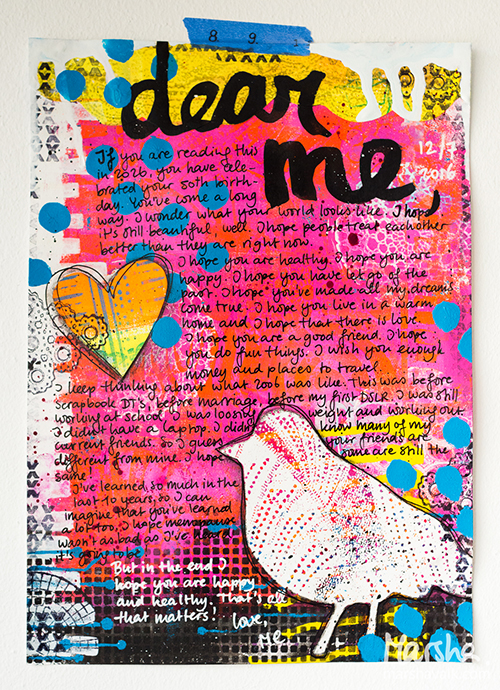 8. 9.
dear
me,
12/7
2016
If you are reading this
in 2026, you have cele-
brated your 50th birth-
day. You've come a long
way. I wonder what your world looks like. I hope
it's still beautiful, well. I hope people treat each other
better than they are right now.
I hope you are healthy. I hope you are
happy. I hope you have let go of the
past. I hope you've made all my dreams
come true. I hope you live in a warm
home and I hope that there is love.
I hope you are a good friend. I hope
you do fun things. I wish you enough
money and places to travel.
I keep thinking about what 2006 was like. This was before
Scrapbook DT's, before marriage, before my first DSLR. I was still
working at school. I was loosing weight and working out
I didn't have a laptop. I didn't know many of my
current friends. So I guess your friends are
different from mine. I hope some are still the
same!
I've learned so much in the
last 10 years, so I can
imagine that you've learned
a lot too. I hope menopause
wasn't as bad as I've heard
it's going to be
But in the end I
hope you are happy
and healthy. That's all
that matters!
Love,
Me
Marsha